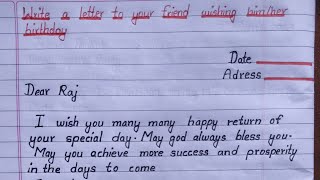 Write a letter to your friend wishing him/her
birthday
Date
Adress
Dear Raj
I wish you many many happy return of
your special day. May god always bless you.
May you achieve more success and prosperity
in the days to come